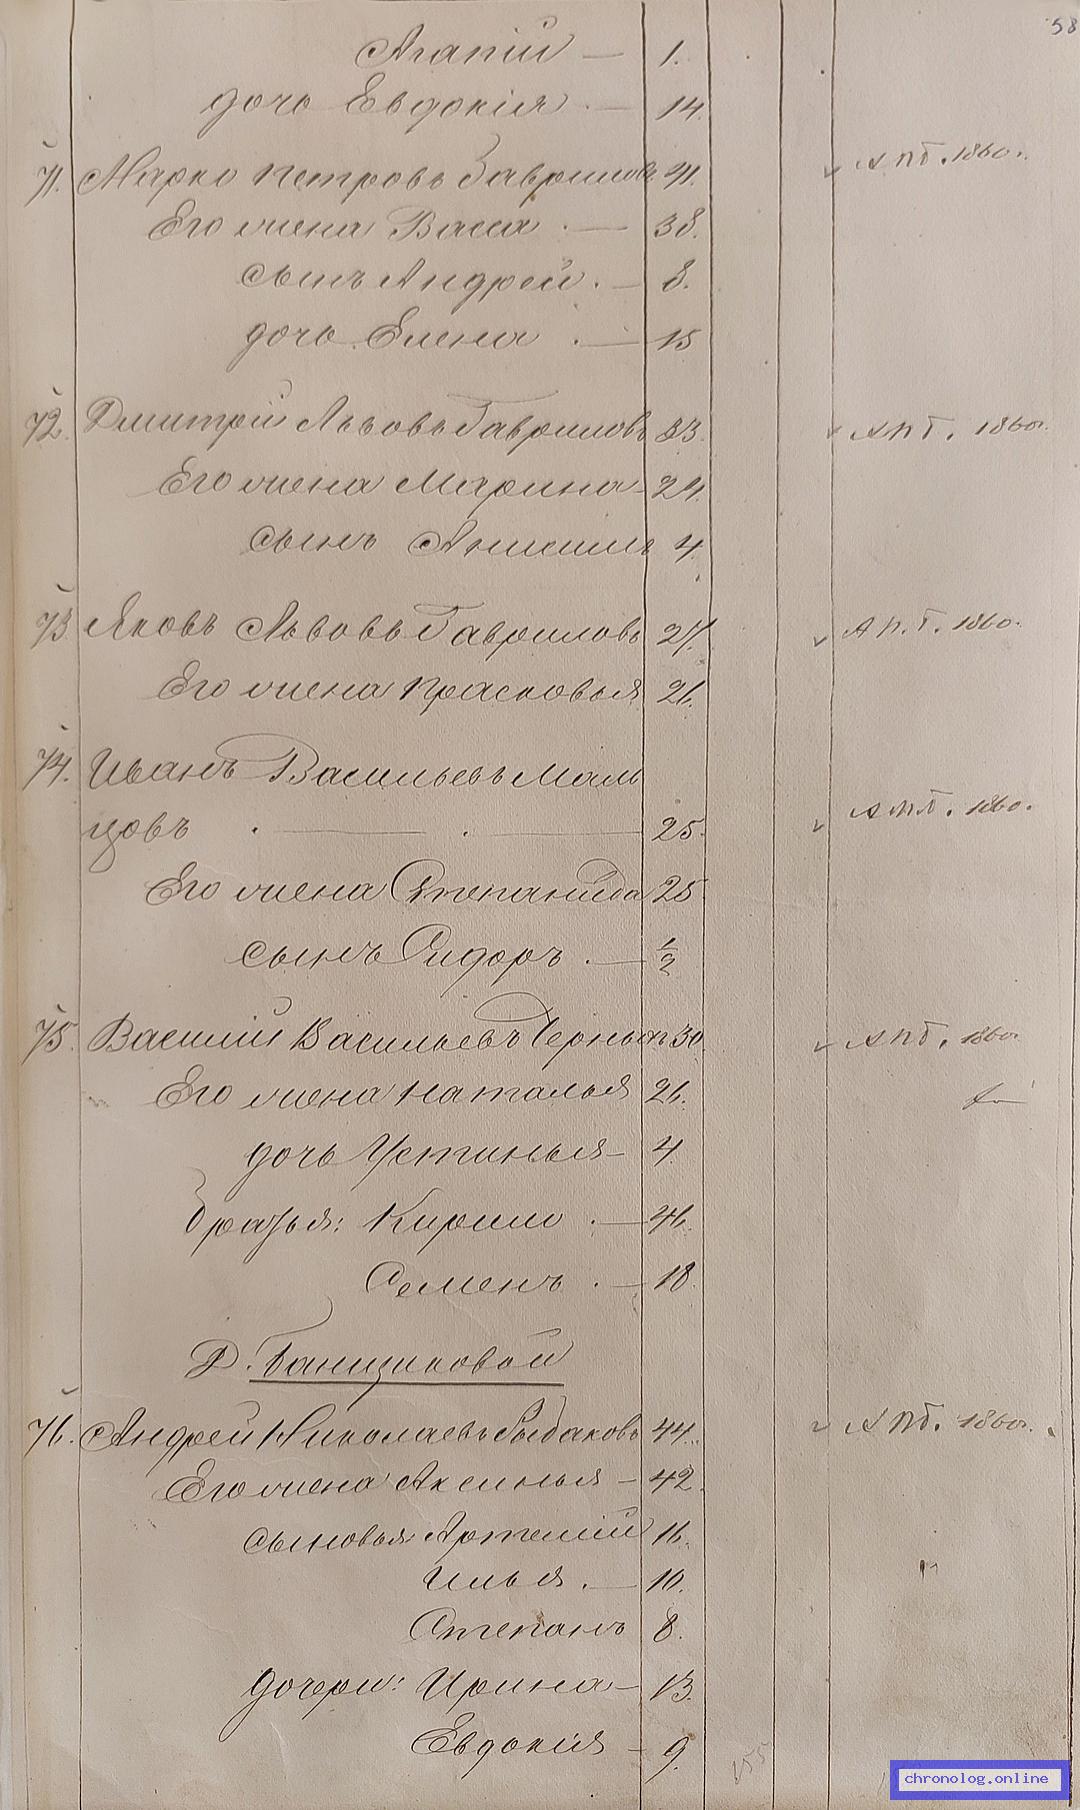 58
Агапій — 1.
дочь Евдокія. — 14.
71. Марко Петровъ Гавриловъ 41. А П Б. 1860.
Его жена Васса. — 38.
сынъ Андрей. — 8.
дочь Елена. — 15
72. Дмитрій Львовъ Гавриловъ 33. А П Б. 1860.
Его жена Марина — 24.
сынъ Анисимъ 4.
73. Яковъ Львовъ Гавриловъ 27. А П. Б. 1860.
Его жена Прасковья 26.
74. Иванъ Васильевъ Маль
цовъ . — . — 25. 1860.
Его жена Степанида 25
сынъ Сидоръ. — 1/2
75. Василій Васильевъ 30. А П Б. 1860.
Его жена Наталья 26.
дочь Устинья — 4.
братья: Кирило. —
Семенъ. — 18.
Д. Банщиковой
76. Андрей Николаевъ Рыбаковъ 44. А П Б. 1860.
Его жена Аксинья — 42.
сыновья: Артемій 16.
Илья. — 10.
Степанъ 8.
дочери: Ирина — 13.
Евдокія — 9.
155
chronolog.online